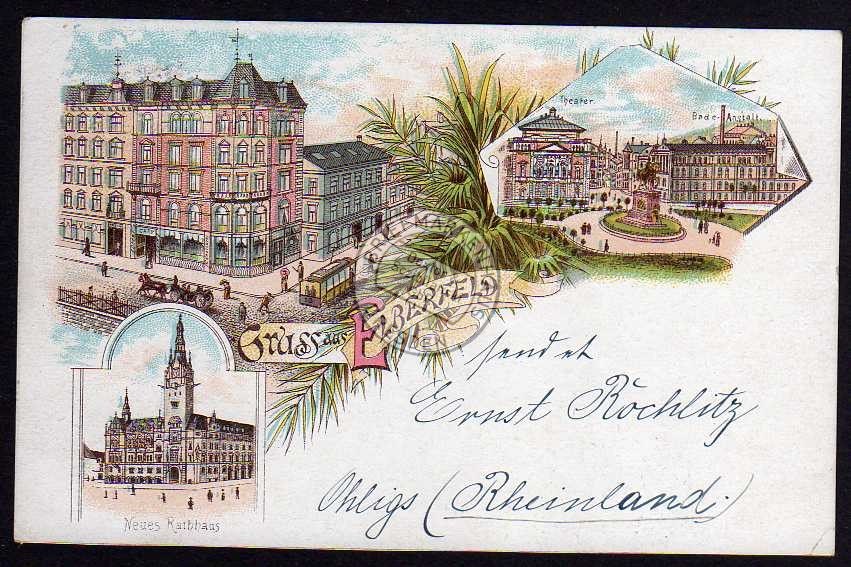 Theater.
Bade-Anstalt
Gruss aus ELBERFELD
sendet
Ernst Röchlitz
Ohligs (Rheinland.)
Neues Rathhaus